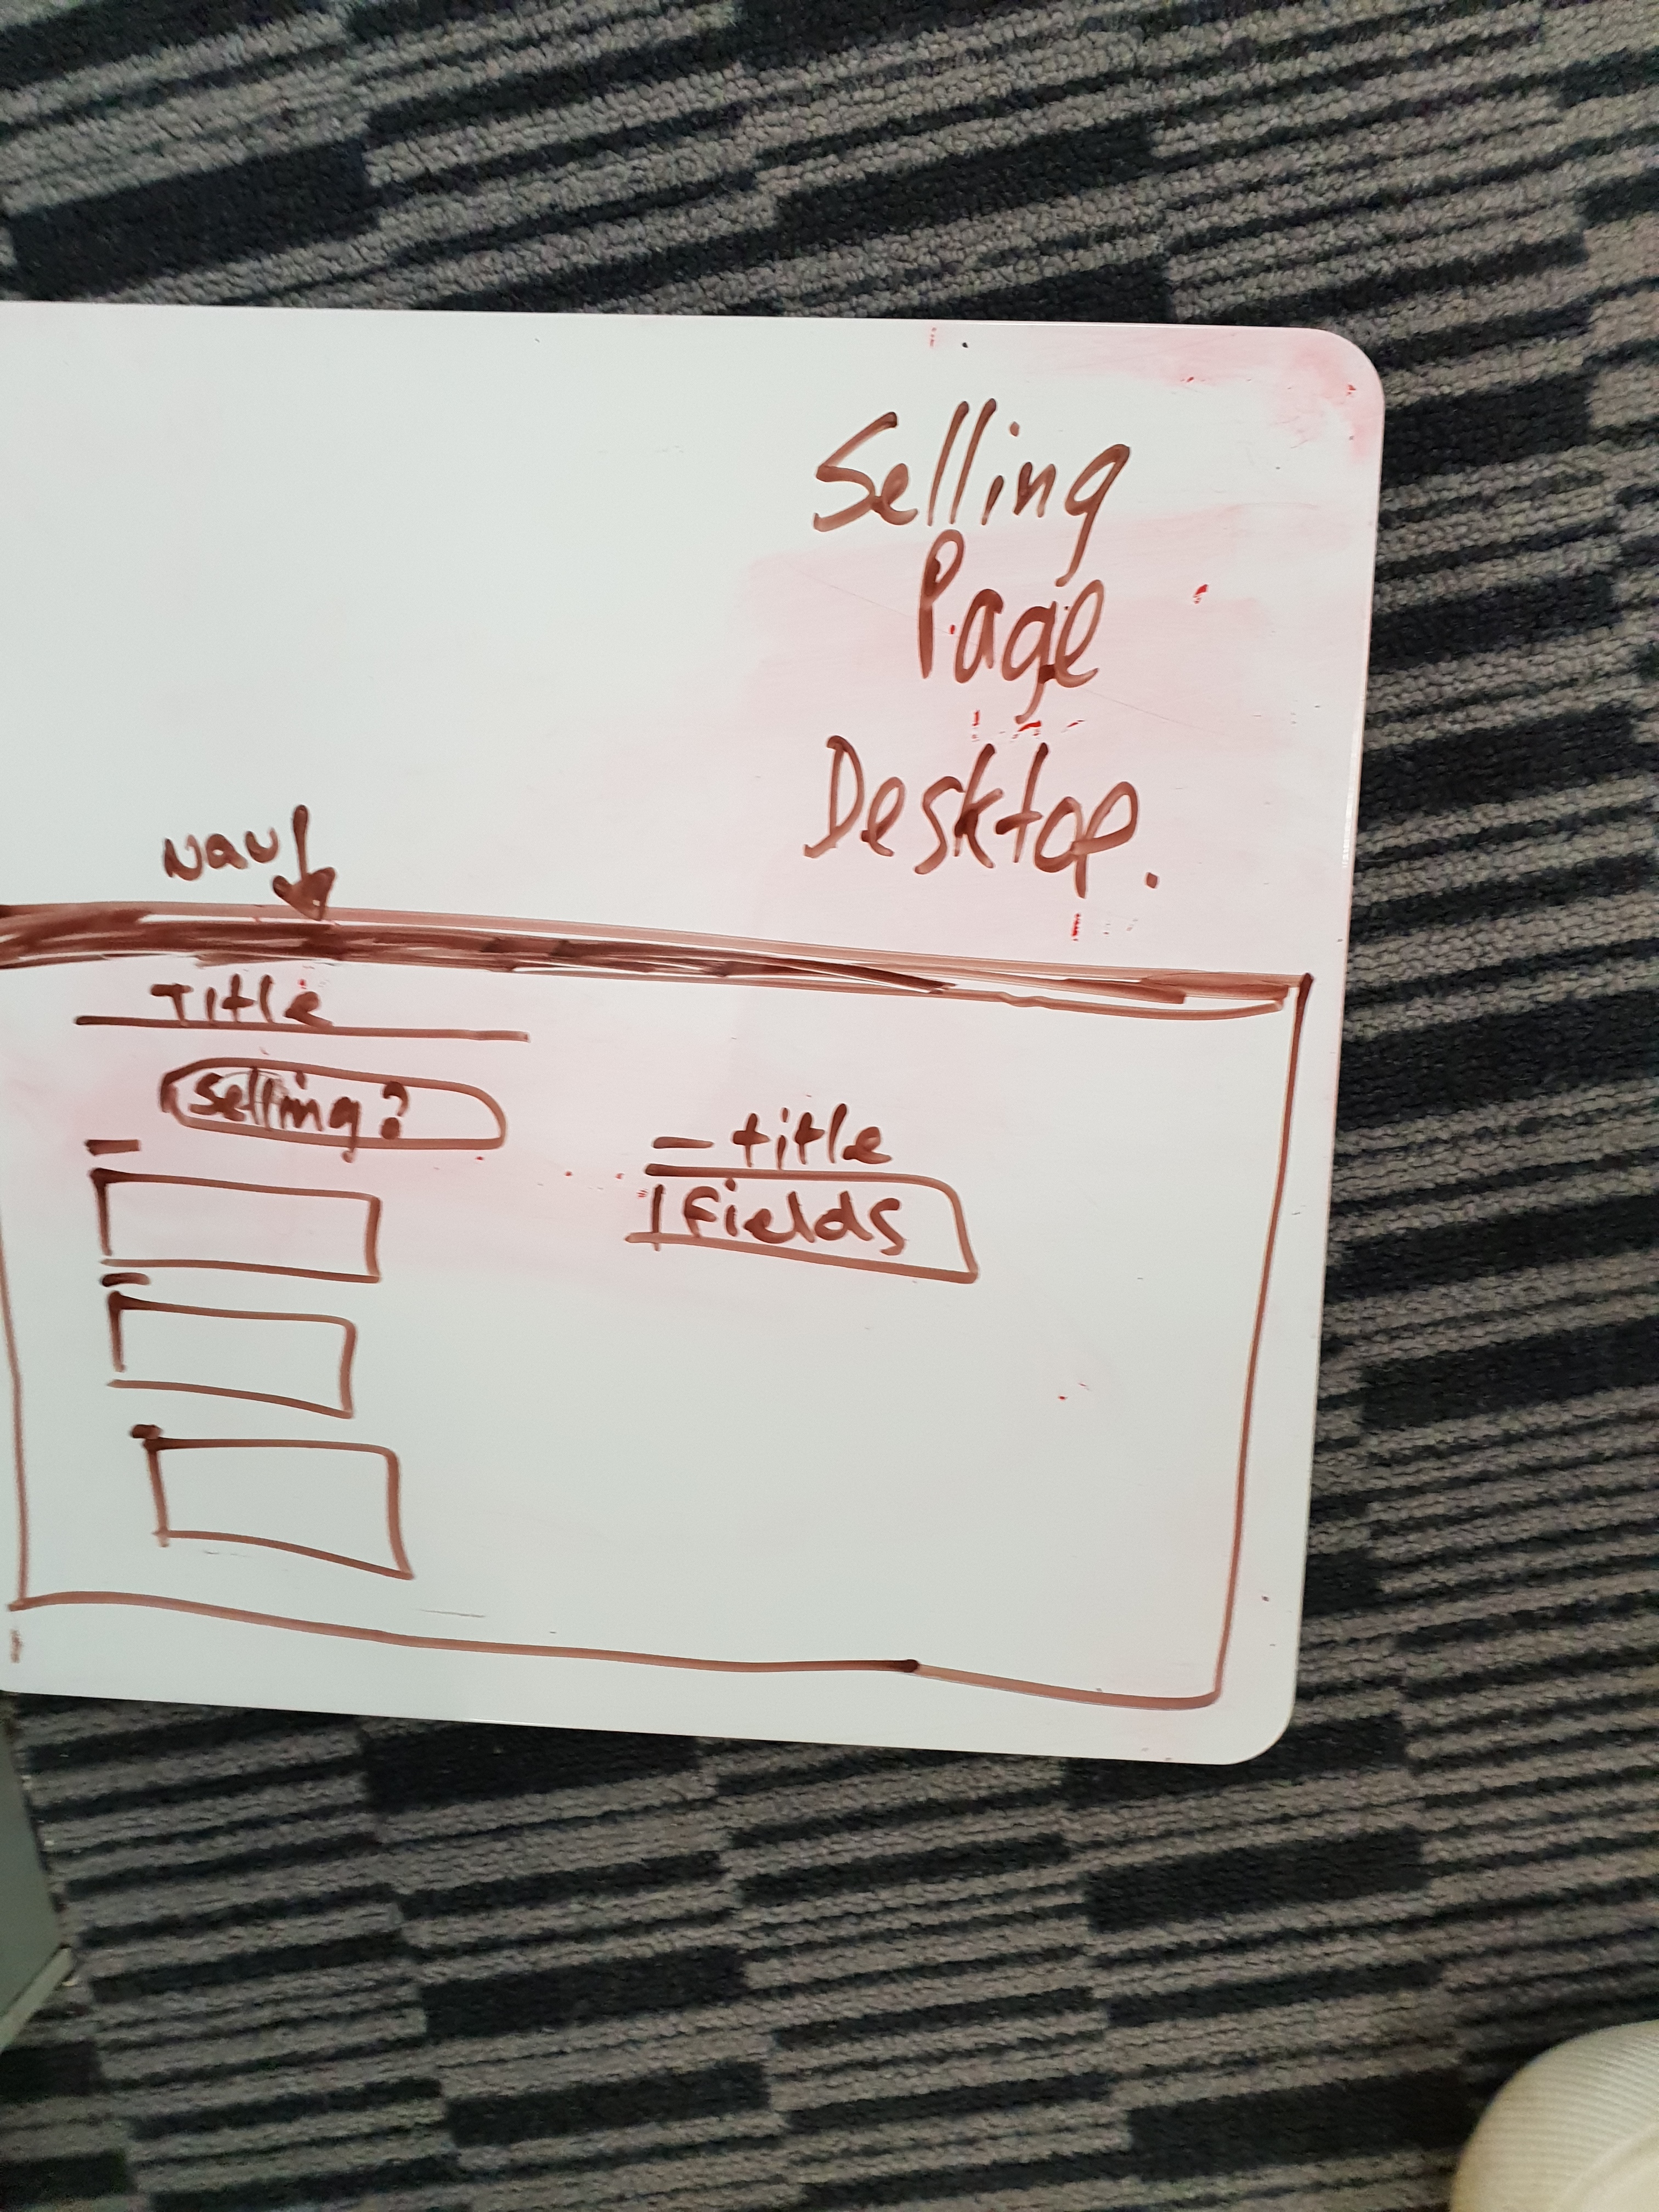 Selling
Page
Desktop.
Nav
Title
Selling?
title
fields